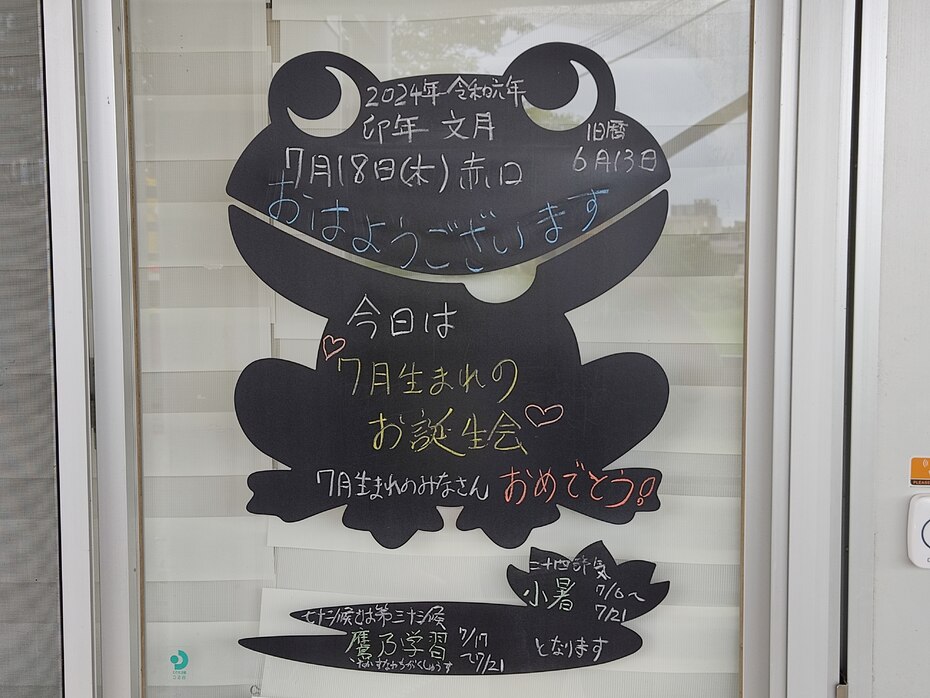 2024年 令和六年
卯年 文月
旧暦
6月13日
7月18日(木) 赤口
おはようございます
今日は
7月生まれの
お誕生会
7月生まれのみなさん おめでとう!
二十四節気
小暑 7/6〜
7/21
七十二候では第三十三候
鷹乃学習 7/17
〜7/21
たかすなわちがくしゅうす
となります